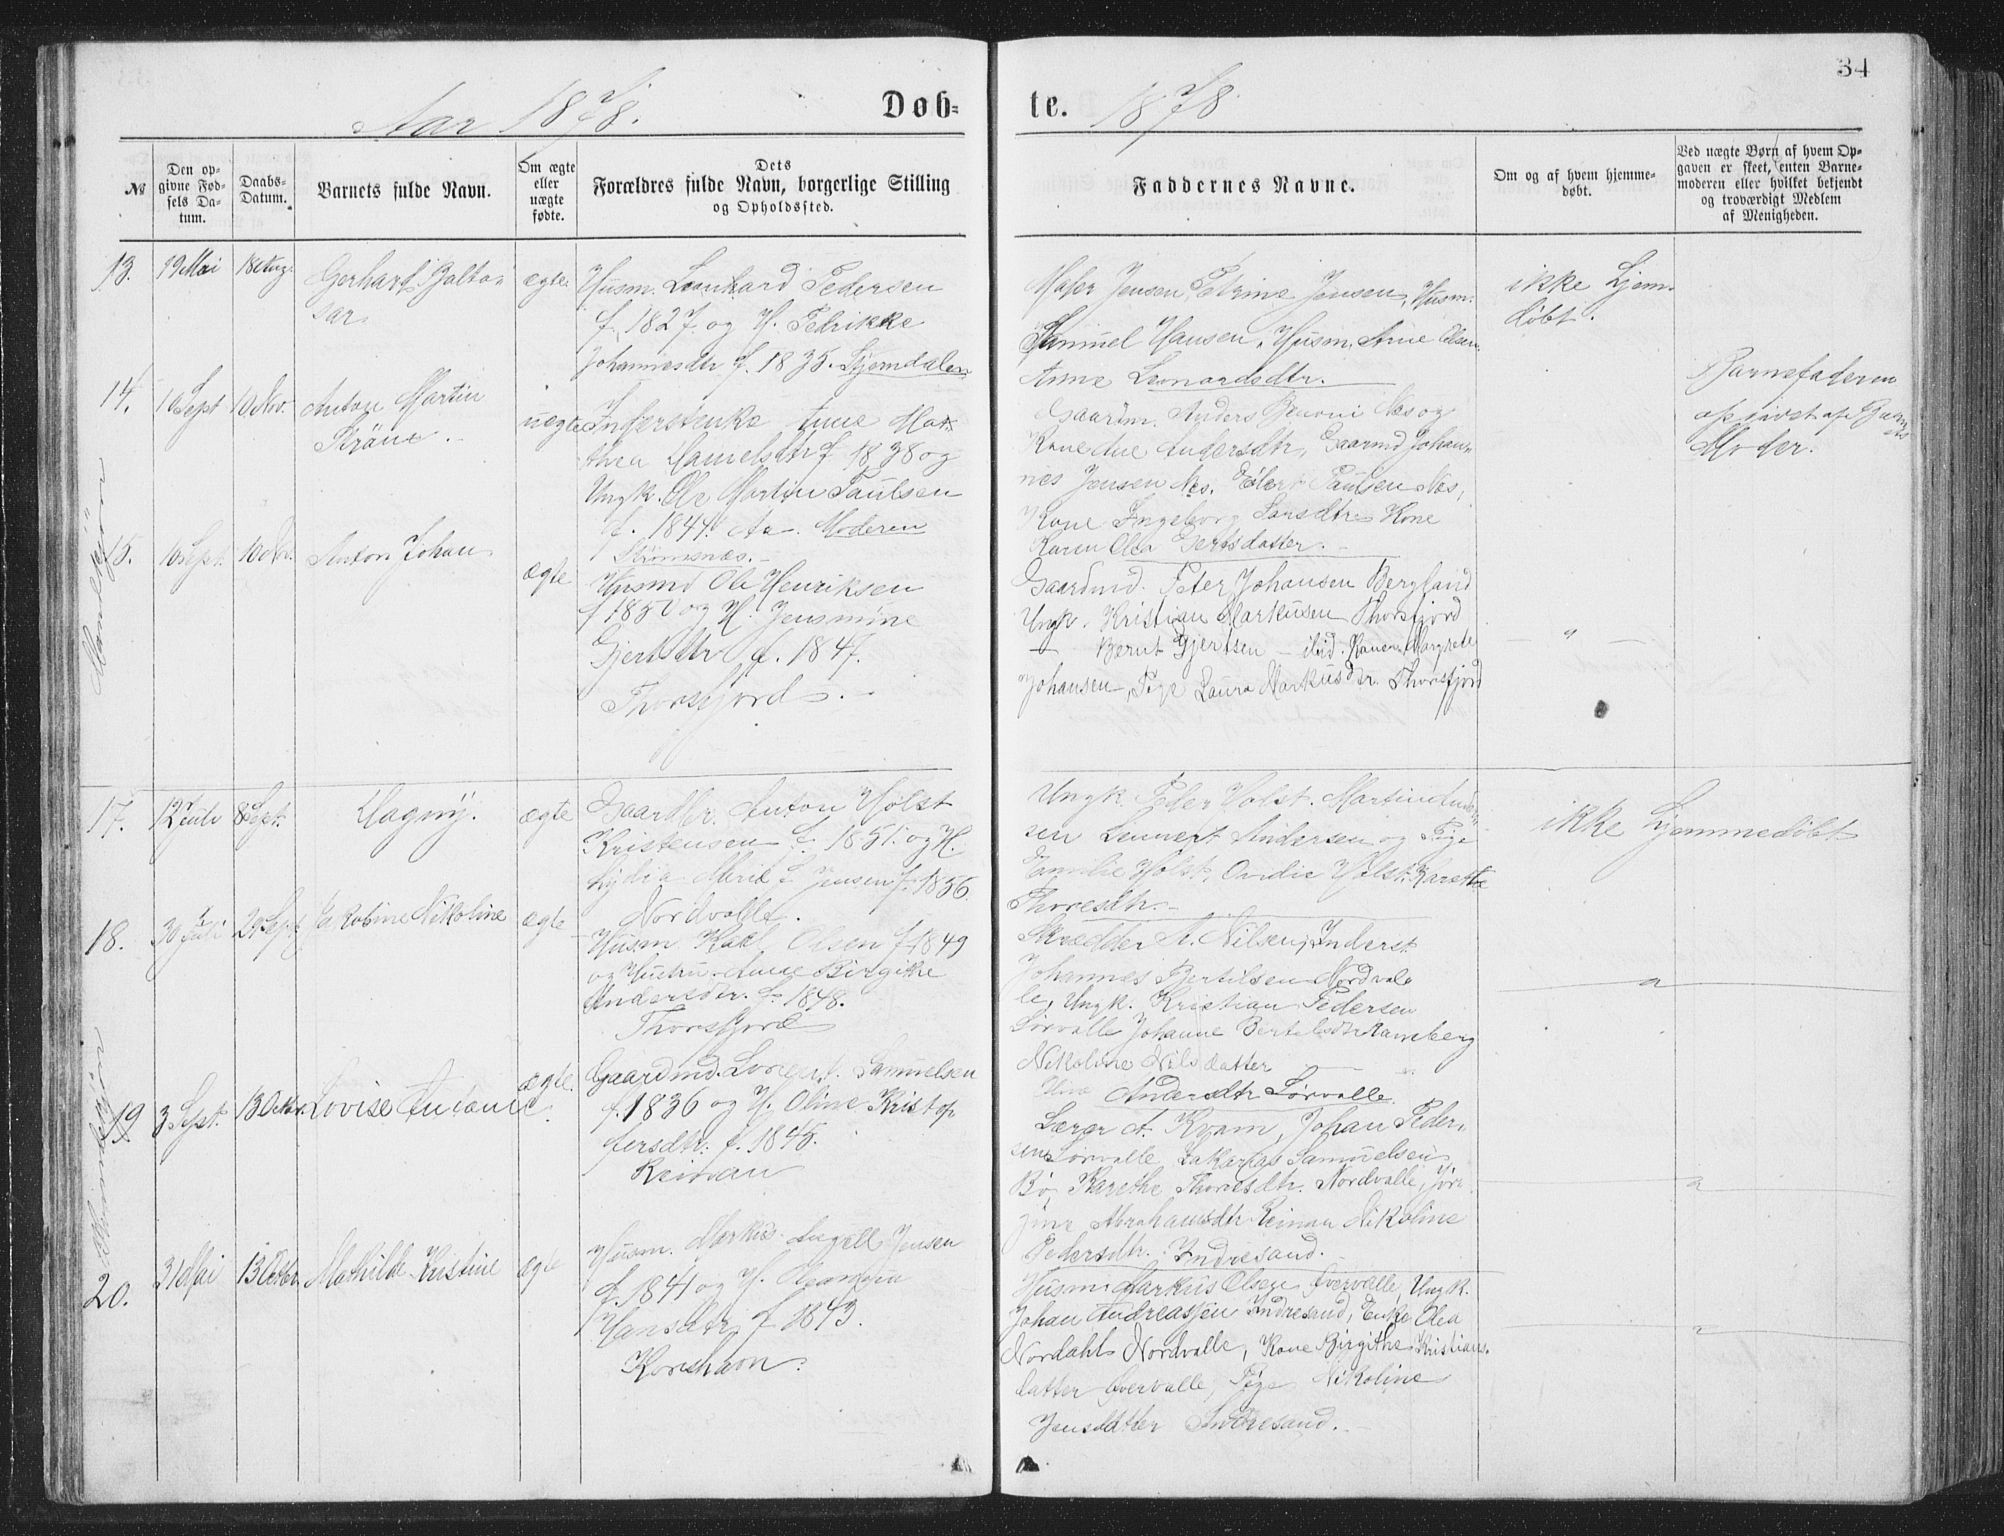 34
Aar 1878.
Døb=
te.
1878
№
Den op-
givne Fød-
sels Da-
tum.
Daabs-
Datum.
Barnets fulde Navn.
Om ægte
eller
uægte
fødte.
Dets
Forældres fulde Navn, borgerlige Stilling
og Opholdssted.
Faddernes Navne.
Om og af hvem hjemme-
døbt.
Ved uægte Børn af hvem Op-
gaven er skeet, enten Barne-
moderen eller hvilket bekjendt
og troværdigt Medlem
af Menigheden.
13.
19 Mai
18 Aug.
Gerhart Baltas
sar
ægte
Husm. Leonhard Pedersen
f. 1827. og H. Pedrikke
Johannesdtr f. 1835. Stjerndalen
Jensen, Petrine Jensen, Husm.
Samuel Hansen, Husm. Arne Olsen,
Anne Leonardsdtr.
ikke hjem-
døbt.
14.
10 Sept
10 Nov.
Anton Martin
Strøm.
uægte
Inderstenke Anne Mat-
thea Danielsdtr f. 1838 og
Ungk. Ole Martin Paulsen
f. 1844. Moderen
Strømsnæs.
Gaardm. Anders Næs og
Kone Andersdtr, Gaardmd Johan-
nes Jensen Næs, Paulsen Næs,
Kone Ingeborg Larsdtr, Kone
Karen Olea Gertsdatter.
Barnefaderen
opgivet af Barnets
Moder.
15.
10 Sept.
10 Nov.
Anton Johan
ægte
Husmd Ole Henriksen
f 1850 og H. Jensmine
Gjertsdtr f. 1847.
Thorsfjord.
Gaardmd. Peter Johansen Bergland
Ungk. Kristian Markusen Thorsfjord
— Bernt Gjertsen — ibid. Konen Margrete
Johansen, Pige Laura Markusdtr. Thorsfjord
— " —
17.
12 Juli
8 Sept.
Dagny.
ægte
Gaardbr. Anton Holst
Kristensen f. 1851. og H.
Lydia Jensen f. 1856.
Nordvalle.
Ungk. Peder Holst. Martin Ander-
sen Lennert Andersen og Pige
Emilie Holst, Ovidie Holst, Karethe
Thoresdtr.
ikke hjemmedøbt
18.
30 Juli
29 Sept
Jakobine Nikoline
ægte
Husm Karl Olsen f 1849
og Hustru Anne Birgithe
Andersdtr. f. 1848.
Thorsfjord
Skrædder A. Nilsen, Inderst
Johannes Bertilsen Nordval-
le, Ungk. Kristian Pedersen
Sørvalle Johanne Bertilsdtr Ramberg
Nikoline Nilsdatter
Andersdtr Sørvalle.
"
19
3 Sept.
13 Oktbr.
Lovise
ægte.
Gaardmd. Samuelsen
f. 1836 og H. Oline Kristof-
fersdtr. f. 1845.
Reinan
Lærer A. Kvam, Johan Peder-
sen Sørvalle Zakarias Samuelsen
Bø, Karethe Thoresdtr. Nordvalle, Jør-
gine Abrahamsdtr Reinan Nikoline
Pedersdtr. Indresand.
"
20.
31 Mai
13 Oktbr.
Mathilde Kristine
ægte
Husm. Markus Angell Jensen
f. 1841 og H.
Hansdtr f 1843.
Korshavn.
Husm Markus Olsen Overvalle, Ungk.
Johan Andreassen Indresand, Enke Olea
Nordahl Nordvalle, Kone Birgithe Kristians-
datter Overvalle, Pige Nikoline
Jensdatter Indresand.
"